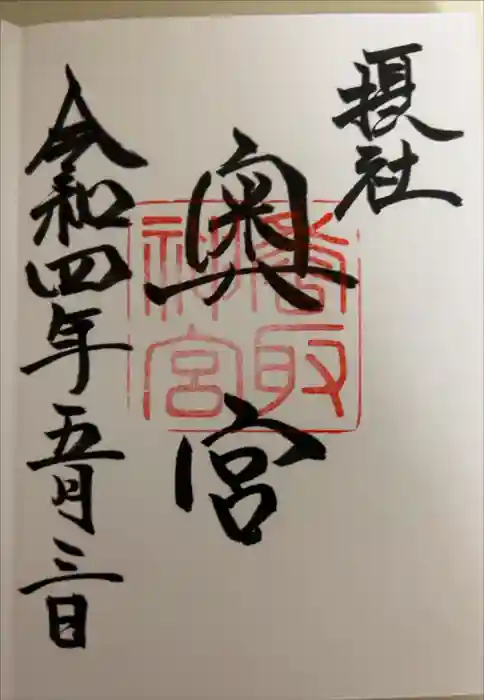 摂社
奥宮
香取神宮
令和四年五月三日